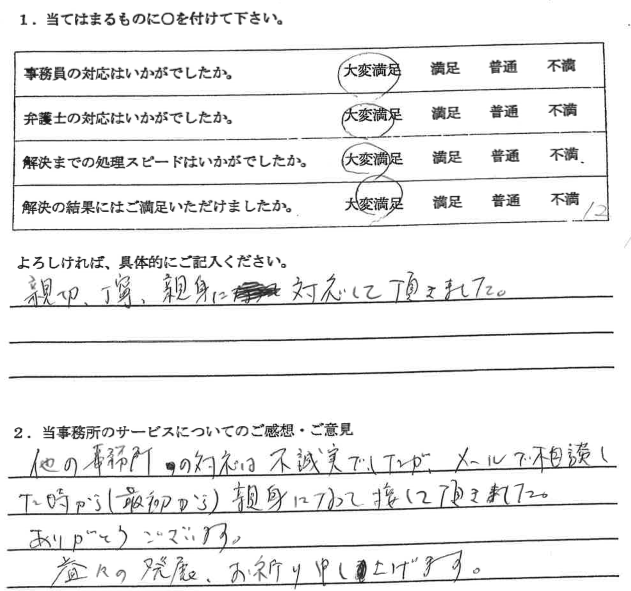 1．当てはまるものに〇を付けて下さい。
事務員の対応はいかがでしたか。 大変満足 満足 普通 不満
弁護士の対応はいかがでしたか。 大変満足 満足 普通 不満
解決までの処理スピードはいかがでしたか。 大変満足 満足 普通 不満
解決の結果にはご満足いただけましたか。 大変満足 満足 普通 不満
12
よろしければ、具体的にご記入ください。
親切、丁寧、親身に 対応して頂きました。
2．当事務所のサービスについてのご感想・ご意見
他の事務所の対応は不誠実でしたが、メールで相談し
た時から(最初から)親身になって接して頂きました。
ありがとうございます。
益々の発展、お祈り申し上げます。